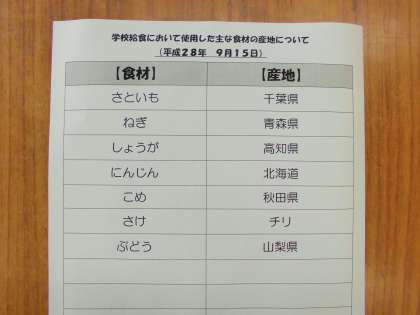 学校給食において使用した主な食材の産地について
(平成28年 9月15日)
【食材】 【産地】
さといも 千葉県
ねぎ 青森県
しょうが 高知県
にんじん 北海道
こめ 秋田県
さけ チリ
ぶどう 山梨県